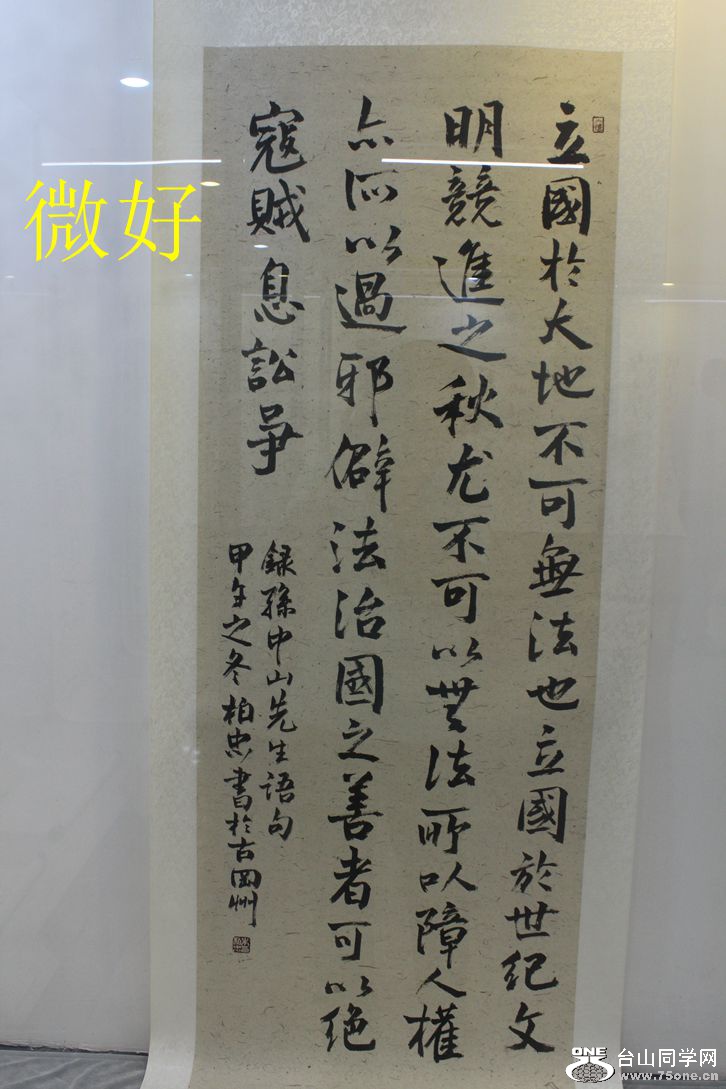 立國於大地不可無法也立國於世纪文
明競進之秋尤不可以無法所以障人權
亦所以過邪僻法治國之善者可以绝
寇贼息訟爭
録孫中山先生語句
甲午之冬柏忠書於古岡州
微好
ONE
台山同学网
www.75one.cn